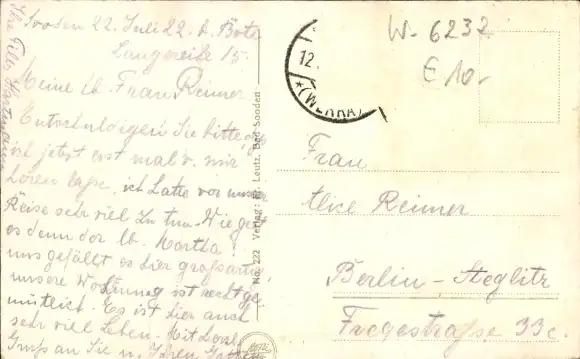 Sooden 22. Juli 22. b. Bote
Langereihe 15.
Meine lb. Frau Reimer
Entschuldigen Sie bitte, daß
ich jetzt erst mal v. mir
hören lasse, ich hatte vor unserer
Reise sehr viel zu tun. Wie geht
es denn der lb. Martha?
uns gefällt es hier großartig
unsere Wohnung ist recht ge
mütlich. Es ist hier auch
sehr viel Leben. Mit herzl.
Gruß an Sie u. Ihren
Ihre
No. 222 Verlag: Leutz, Bad Sooden
12.
(WERRA)
W-6232
€ 10.-
Frau
Alice Reimer
Berlin-Steglitz
Fregestraße 33c.